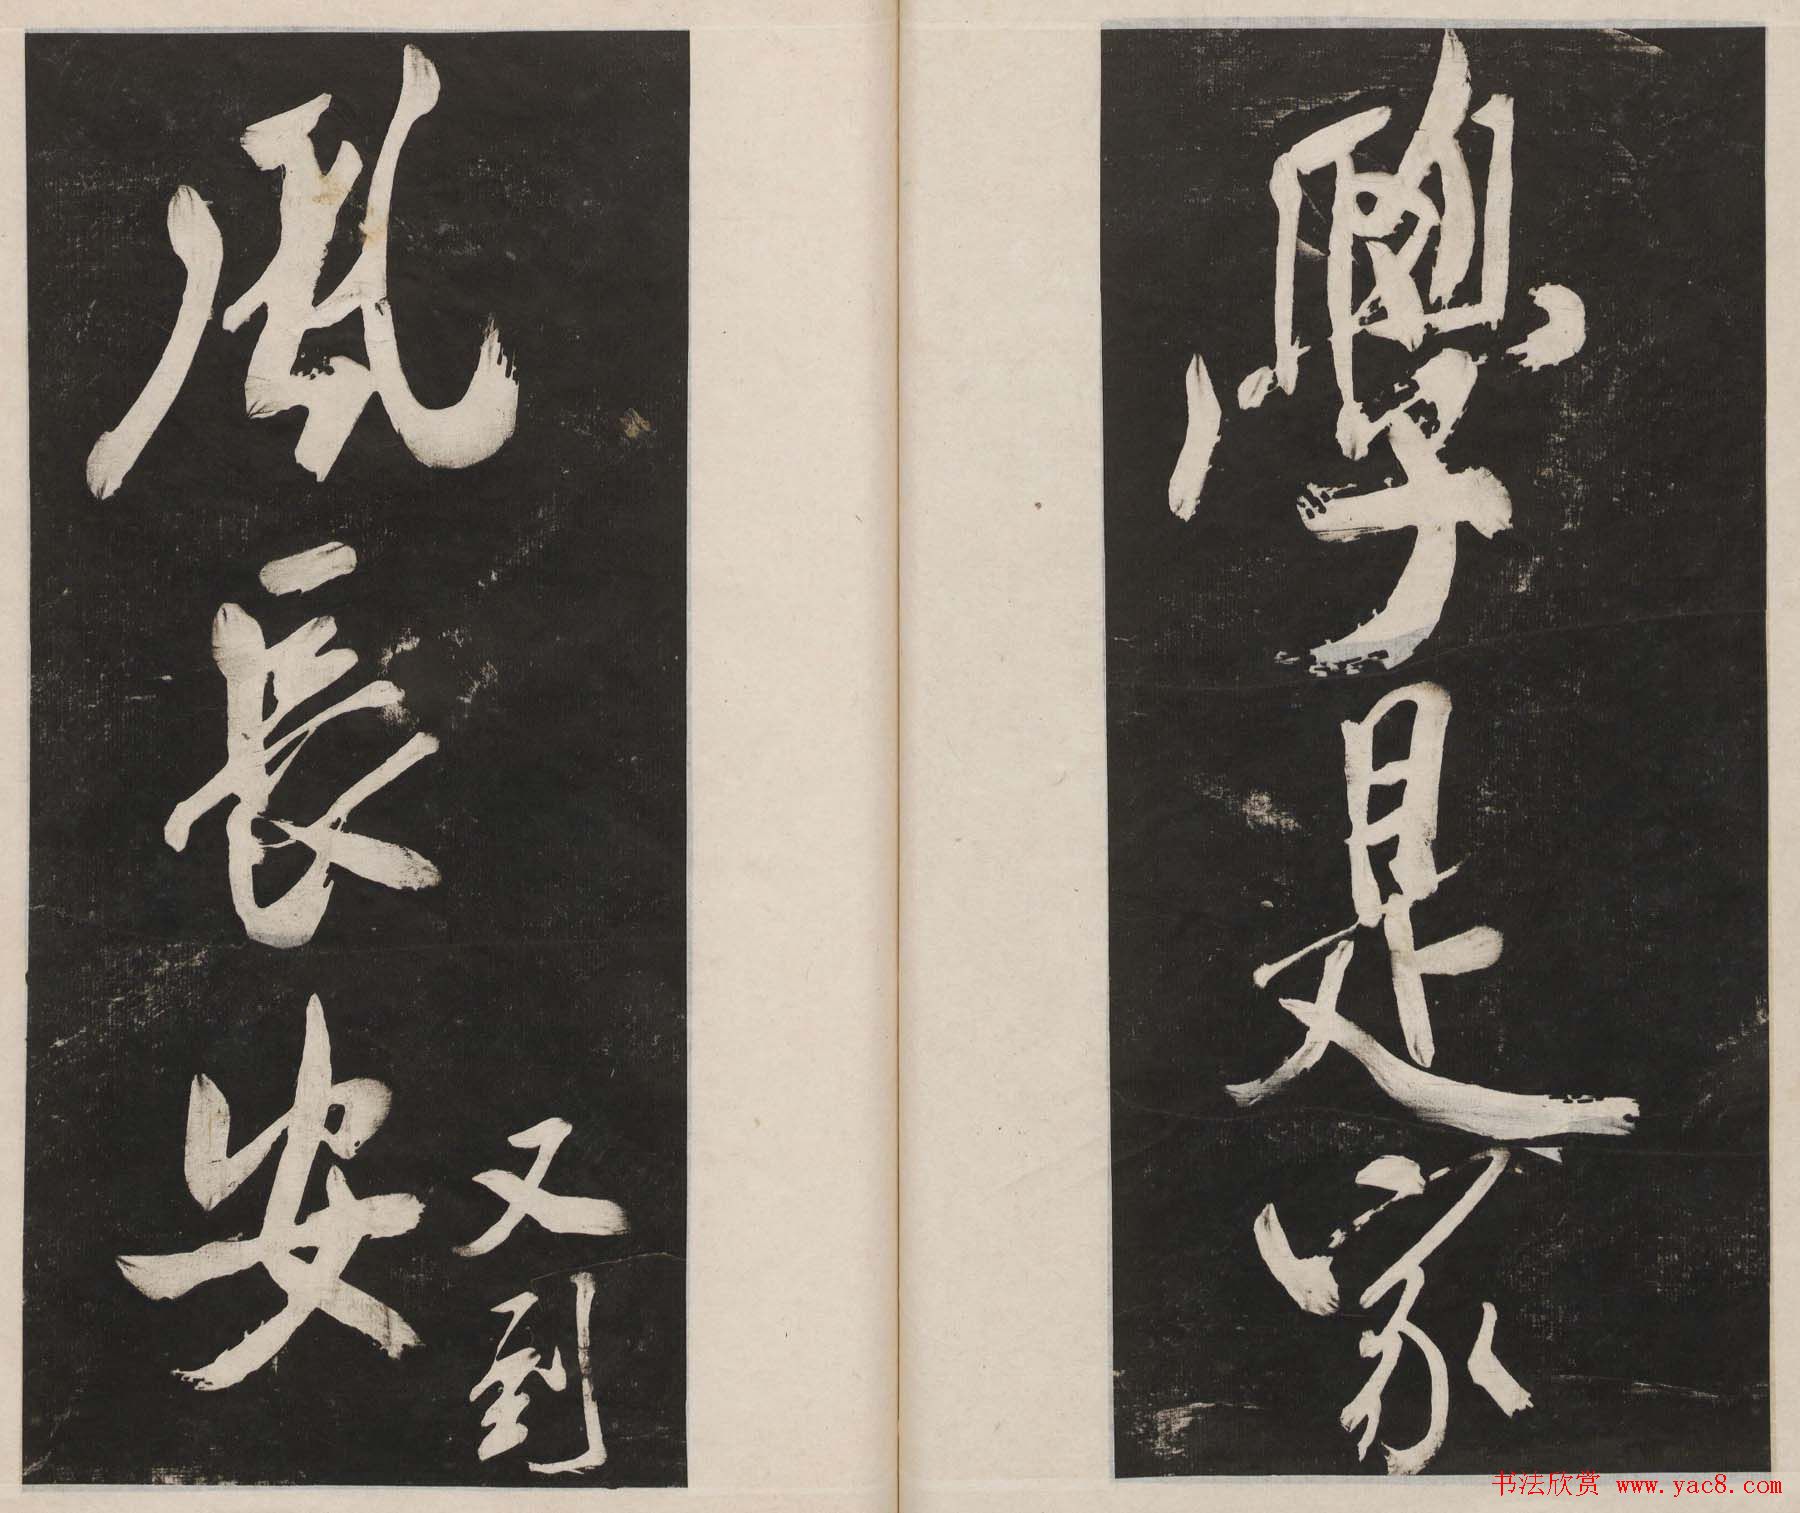 學是家
風長安
又到
书法欣赏 www.yac8.com